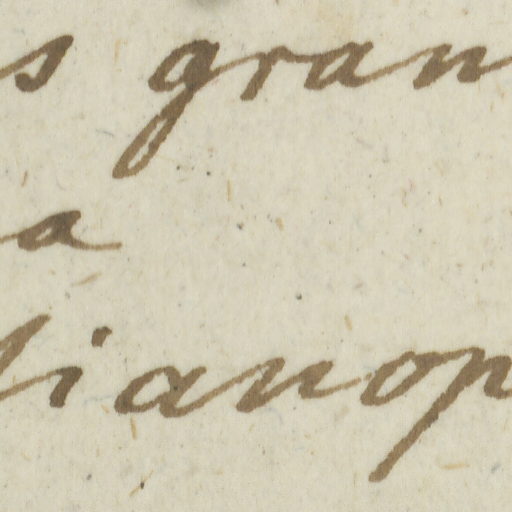 s gran
a
lianop